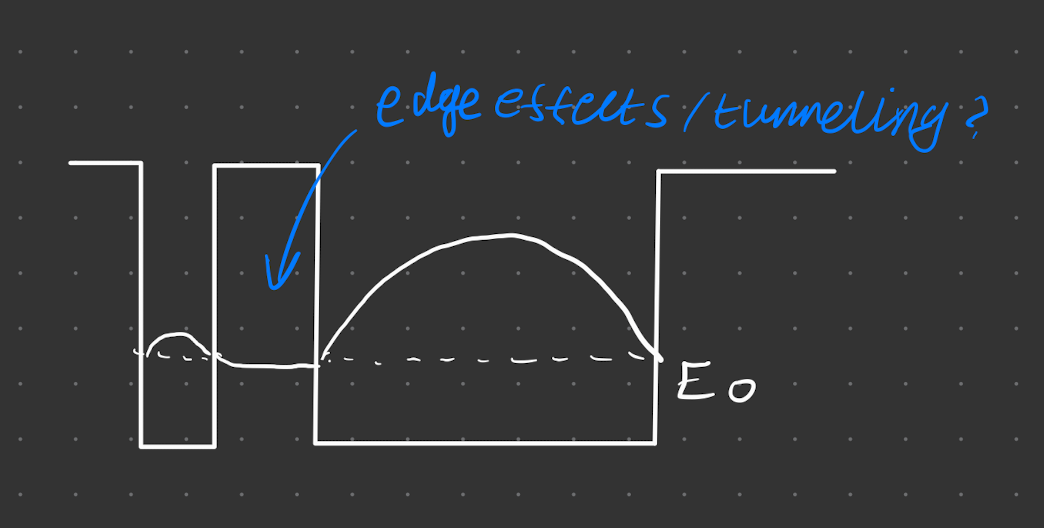 edge effects / tunneling?
E0